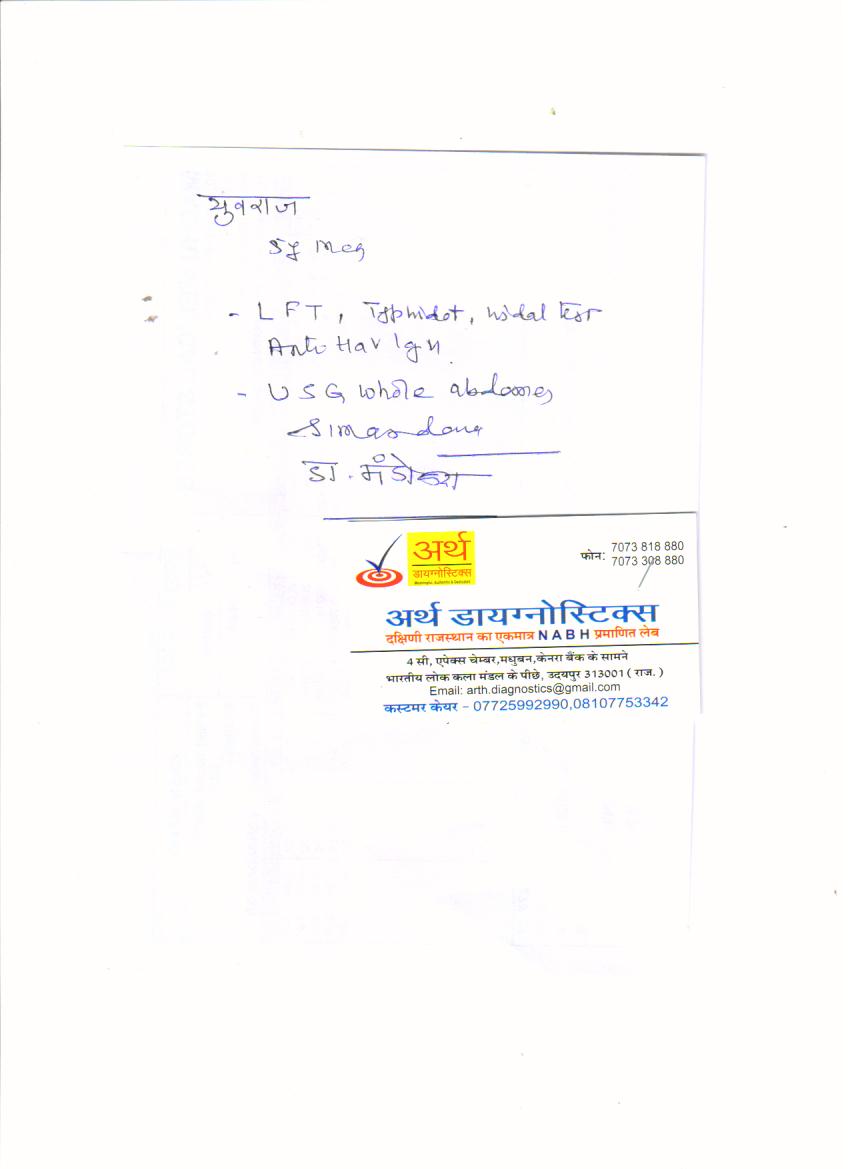 युवराज
5y
- LFT, Typhidot, widal test
Anti Hav IgM
- USG whole abdomen
डा. मंडोवरा
अर्थ
डायग्नोस्टिक्स
फोन: 7073 818 880
7073 308 880
अर्थ डायग्नोस्टिक्स
दक्षिणी राजस्थान का एकमात्र NABH प्रमाणित लेब
4 सी, एपेक्स चेम्बर,मधुबन,केनरा बैंक के सामने
भारतीय लोक कला मंडल के पीछे, उदयपुर 313001 ( राज. )
Email: arth.diagnostics@gmail.com
कस्टमर केयर – 07725992990,08107753342